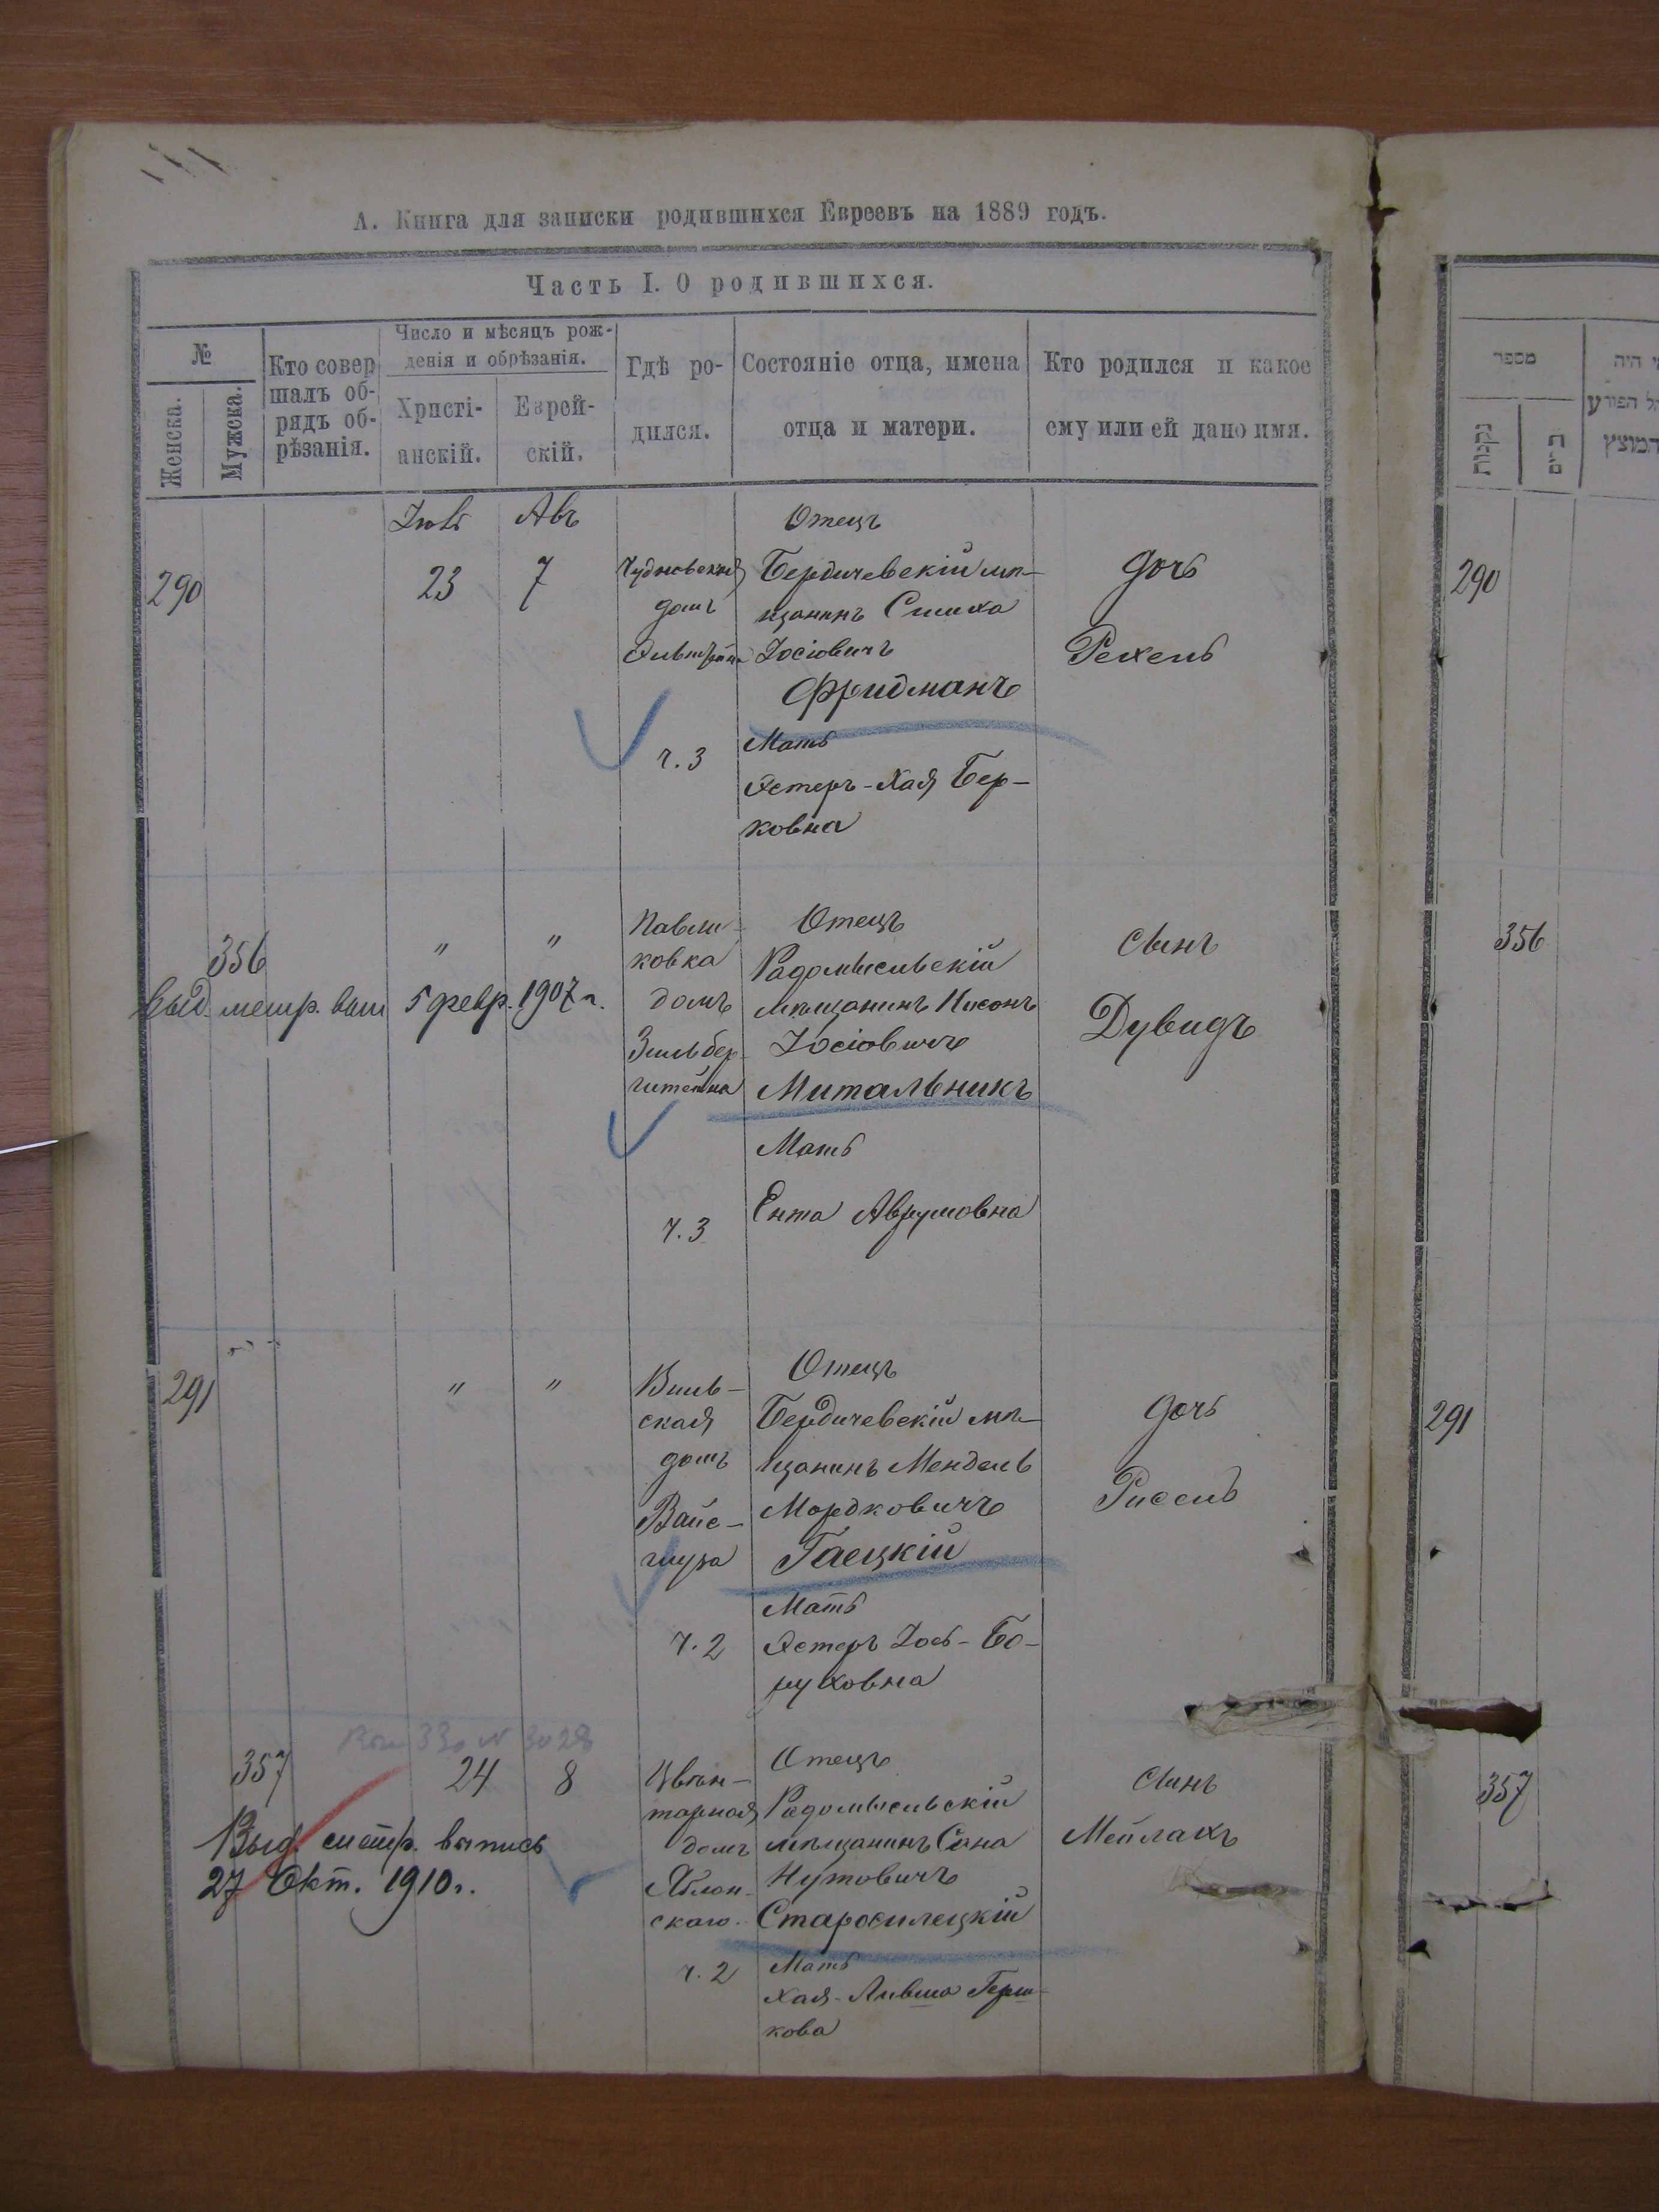 А. Книга для записки родившихся Евреевъ на 1889 годъ.
Часть I. О родившихся.
№
Женска.
Мужска.
Кто совер
шалъ об-
рядъ об-
рѣзанія.
Число и мѣсяцъ рож-
денія и обрѣзанія.
Христі-
анскій.
Еврей-
скій.
Гдѣ ро-
дился.
Состояніе отца, имена
отца и матери.
Кто родился и какое
ему или ей дано имя.
Авъ
290
23
7
Чудновская
домъ
ч. 3
Отецъ
Бердичевскій мѣ-
щанинъ Симха
Іосіовичъ
Фридманъ
Мать
Эстеръ-Хая Бер-
ковна
дочь
Рехель
356
"
"
Выд. метр. вып 5 февр. 1907 г.
Павли-
ковка
домъ
Зильбер-
штейна
ч. 3
Отецъ
Радомысльскій
мѣщанинъ Нисонъ
Іосіовичъ
Митальникъ
Мать
Ента Аврумовна
сынъ
Дувидъ
291
"
"
Виль-
ская
домъ
Вайс-
ч. 2
Отецъ
Бердичевскій мѣ-
щанинъ Мендель
Мордковичъ
Гаецкій
Мать
Эстеръ Іось-Бо-
руховна
дочь
Рисель
№ 3028
357
24
8
Выд. метр. выпись
27 Окт. 1910 г.
Цвын-
тарная
домъ
Яблон-
скаго
ч. 2
Отецъ
Радомысльскій
мѣщанинъ
Нутовичъ
Старосилецкій
Мать
Хая-Ливша Герш-
кова
сынъ
Мейлахъ
מספר
נקבות
המוצץ
290
356
291
357